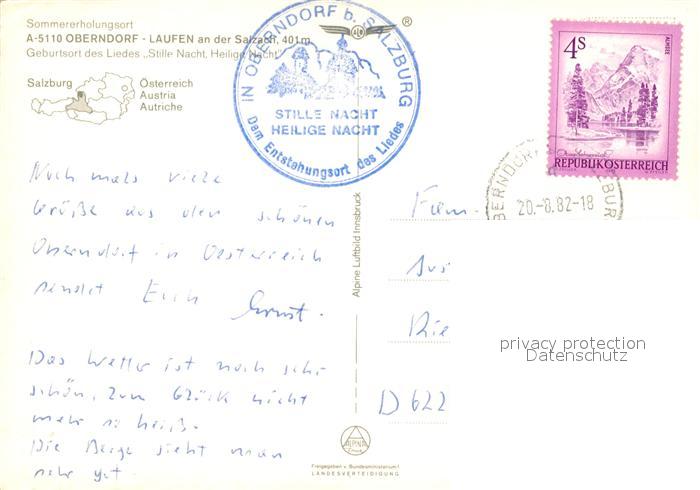 Sommererholungsort
A-5110 OBERNDORF - LAUFEN an der Salzach, 401m
Geburtsort des Liedes „Stille Nacht, Heilige Nacht"
Salzburg
Österreich
Austria
Autriche
IN OBERNDORF b. SALZBURG
STILLE NACHT
HEILIGE NACHT
Dem Entstehungsort des Liedes
®
4S
ALMSEE
REPUBLIK ÖSTERREICH
20.-8.82-18
Noch mals viele
Grüße aus dem schönen
Oberndorf in Oesterreich
sendet Euch Ernst.
Das Wetter ist noch sehr
schön, zum Glück nicht
mehr so heiß.
Die Berge sieht man
sehr gut.
Alpine Luftbild Innsbruck
Fam.
Die
D 622
privacy protection
Datenschutz
ALPINE
Freigegeben v. Bundesministerium f.
LANDESVERTEIDIGUNG